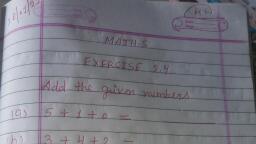 MATHS
EXERCISE 2.4
Add the given numbers
(a) 5 + 1 + 0 =
(b) 3 + 4 + 2 =